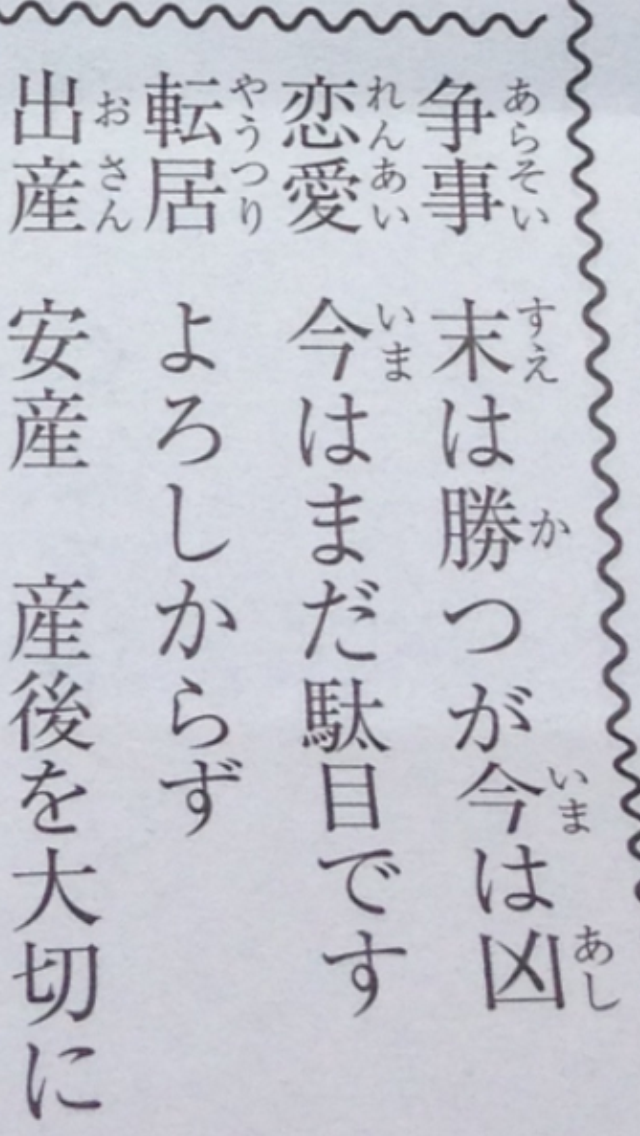 争事 末は勝つが今は凶
恋愛 今はまだ駄目です
転居 よろしからず
出産 安産 産後を大切に